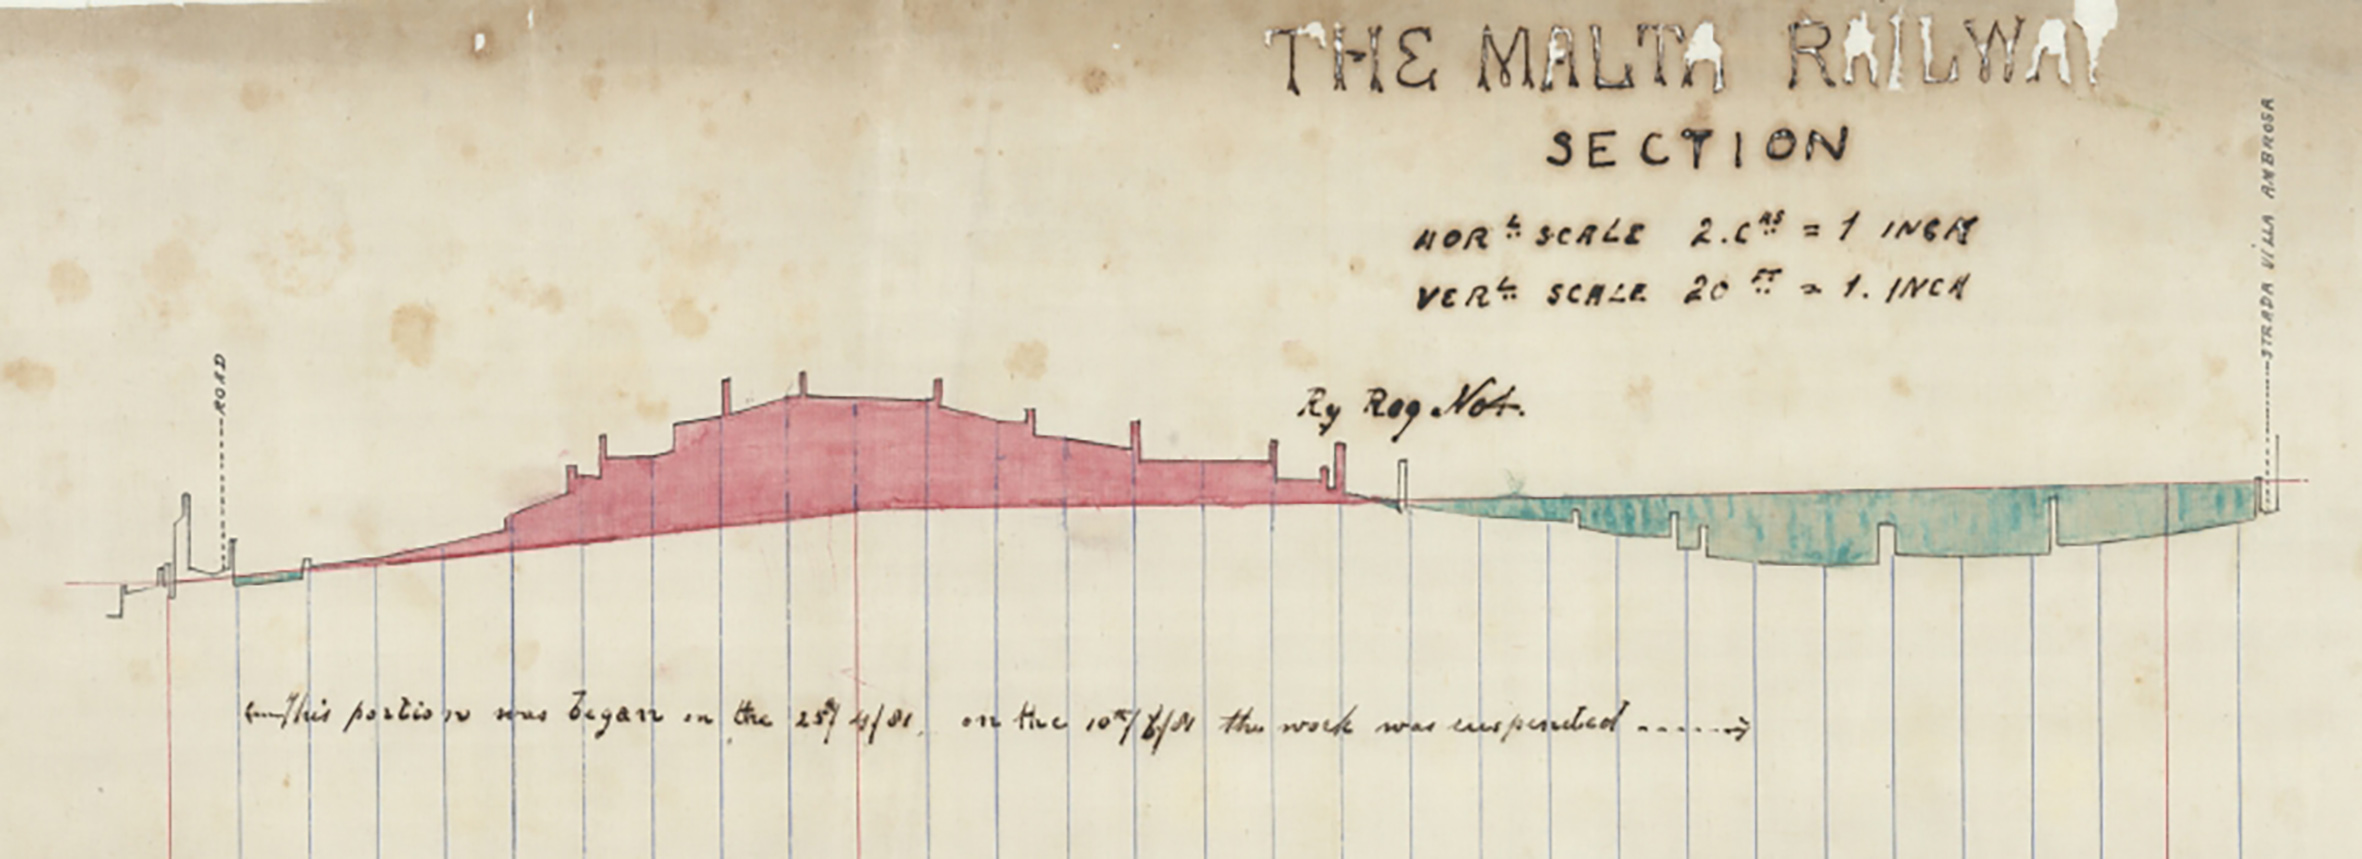 THE MALTA RAILWAY
SECTION
HORL SCALE 2.CHS = 1 INCH
VERL SCALE 20 FT = 1. INCH
STRADA VILLA AMBROSA
ROAD
Ry Reg. Not.
This portion was began on the 25th/4/81, on the 10th/6/81 the work was suspended